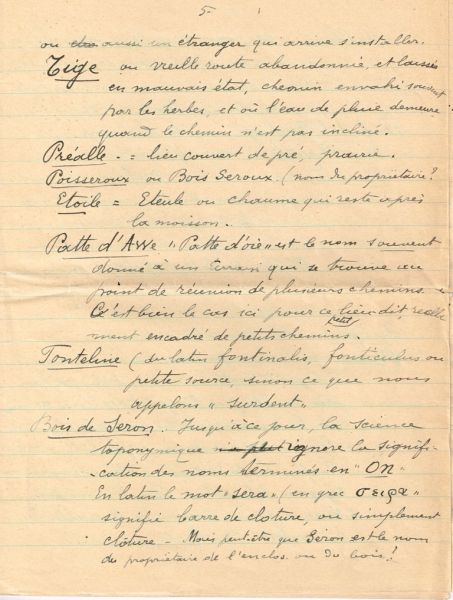 5-
ou aussi un étranger qui arrive s'installer.
Tige ou vieille route abandonnée, et laissée
en mauvais état, chemin envahi souvent
par les herbes, et où l'eau de pluie demeure
quand le chemin n'est pas incliné.
Préalle - = lieu couvert de pré, prairie.
Poisseroux ou Bois Seroux. (nom du propriétaire?
Etoile = Eteule ou chaume qui reste après
la moisson.
Patte d'Awe "Patte d'oie" est le nom souvent
donné à un terrain qui se trouve au
point de réunion de plusieurs chemins.
C'est bien le cas ici pour ce petit lieu dit, réelle
ment encadré de petits chemins.
Fonteline (du latin fontinalis, fonticulus ou
petite source, sinon ce que nous
appelons "surdent"
Bois de Seron. Jusqu'à ce jour, la science
toponymique ignore la signifi-
-cation des noms terminés en "On"
En latin le mot "sera" (en grec σειρα"
signifie barre de cloture, ou simplement
cloture - Mais peut-être que Séron est le nom
du propriétaire de l'enclos ou du bois!